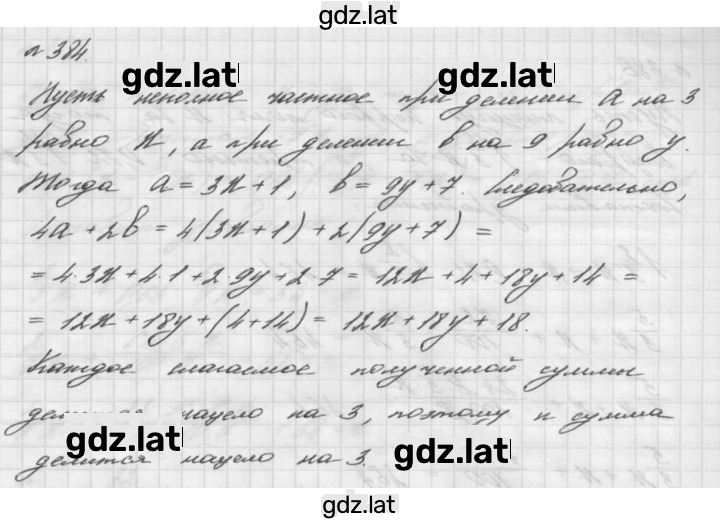 gdz.lat
№ 384.
gdz.lat gdz.lat
Пусть неполное частное при делении a на 3
равно x, а при делении b на 9 равно y.
Тогда a = 3x + 1, b = 9y + 7. Следовательно,
4a + 2b = 4(3x + 1) + 2(9y + 7) =
= 4·3x + 4·1 + 2·9y + 2·7 = 12x + 4 + 18y + 14 =
= 12x + 18y + (4 + 14) = 12x + 18y + 18.
Каждое слагаемое полученной суммы
нацело на 3, поэтому и сумма
gdz.lat gdz.lat
делится нацело на 3.
gdz.lat